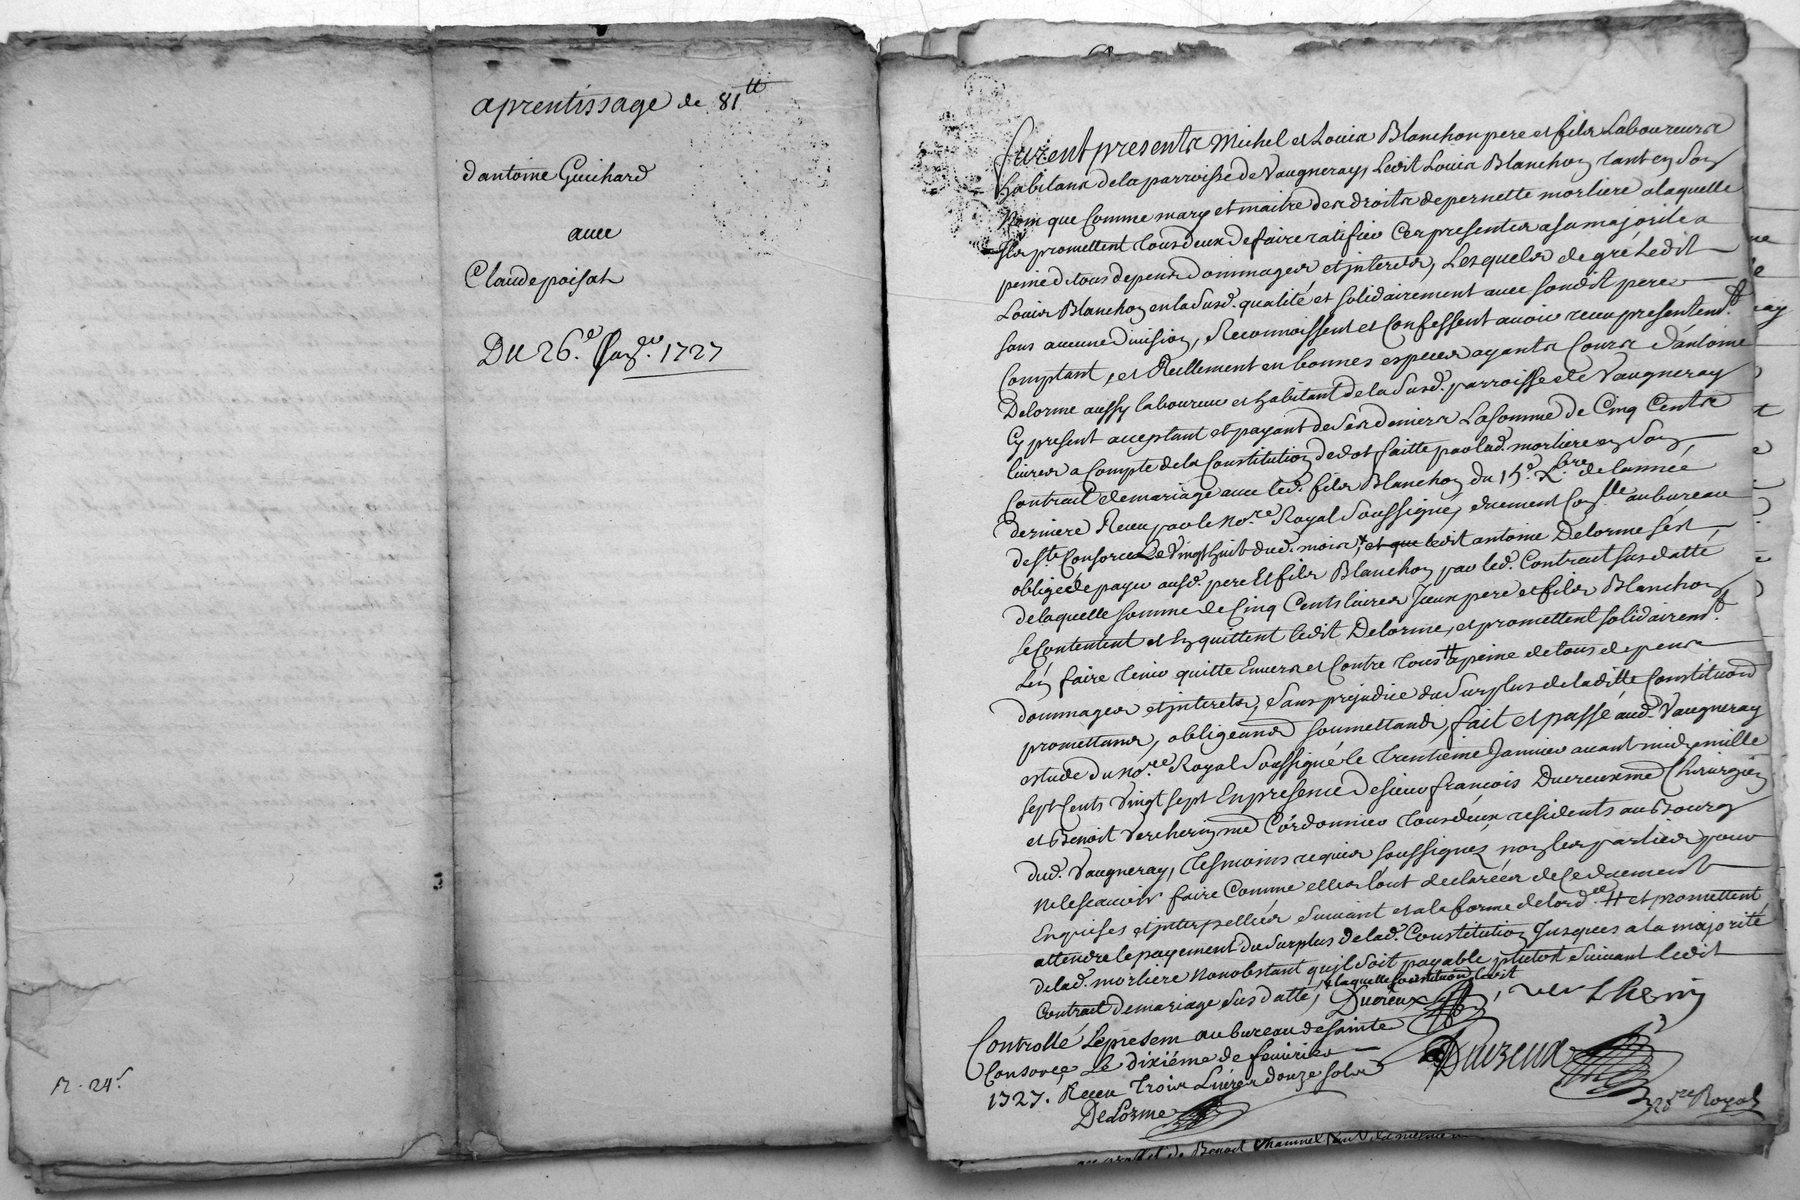 aprentissage de 81tt
d'antoine Guichard
avec
Claude poisat
Du 26.e Janv.er 1727
R. 24s
furent presents Michel et Louis Blanchon pere et fils Laboureurs
habitans de la parroisse de Vaugneray, Ledit Louis Blanchon tant en son
Nom que Comme mary et maitre des droits de pernette morliere a laquelle
Ils promettent tous deux de faire ratifier Ces presentes a sa majorité a
peine de tous depens dommages et interets, Lesquels de gré Ledit
Louis Blanchon en la susd. qualité et solidairement avec sondit pere
sans aucune division, Reconnoissent et Confessent avoir receu presentem.t
Comptant, et Réellement en bonnes especes ayants Cours d'antoine
Delorme aussy laboureur et habitant de la susd. parroisse de Vaugneray
Cy present acceptant et payant de ses deniers La somme de Cinq Cents
livres a Compte de la Constitution de dot faitte par lad. morliere en son
Contrat de mariage avec led. fils Blanchon du 15.e Xbre de l'année
derniere Receu par le No.re Royal soussigné, duement Con.llé au bureau
de Ste Consorce Le Vingt huit dud. mois, et que ledit antoine Delorme s'est
obligé de payer ausd. pere et fils Blanchon par led. Contrat sus datté
de laquelle somme de Cinq Cents livres Iceux pere et fils Blanchon
se Contentent et En quittent ledit Delorme, et promettent solidairem.t
L'en faire tenir quitte Envers et Contre tous a peine de tous depens
dommages et interets, sans prejudice du surplus de laditte Constitution
promettans, obligeans soumettans, fait et passé aud. Vaugneray
estude du No.re Royal soussigné le trentieme Janvier avant midy mille
sept Cents Vingt sept En presence de sieur françois Ducreux me Chirurgien
et Benoit Vercherin me Cordonnier tous deux residents au Bourg
dud. Vaugneray, tesmoins requis soussignez, non les parties pour
ne le scavoir faire Comme elles l'ont declarées de Ce duement
Enquises et interpellées suivant et a la forme de l'ord.ce # et promettent
attendre le payement du surplus de lad. Constitution Jusques a la majorité
de lad. morliere nonobstant qu'il soit payable plutot suivant ledit
a laquelle Constitution ledit
Contrat de mariage sus datté, Ducreux, Vercherin
Controllé Le present au bureau de Sainte
Consorce Le dixiéme de fevrier
1727. Receu trois Livres douze sols
DeLorme
Ducreux
No.re Royal
de Benoit